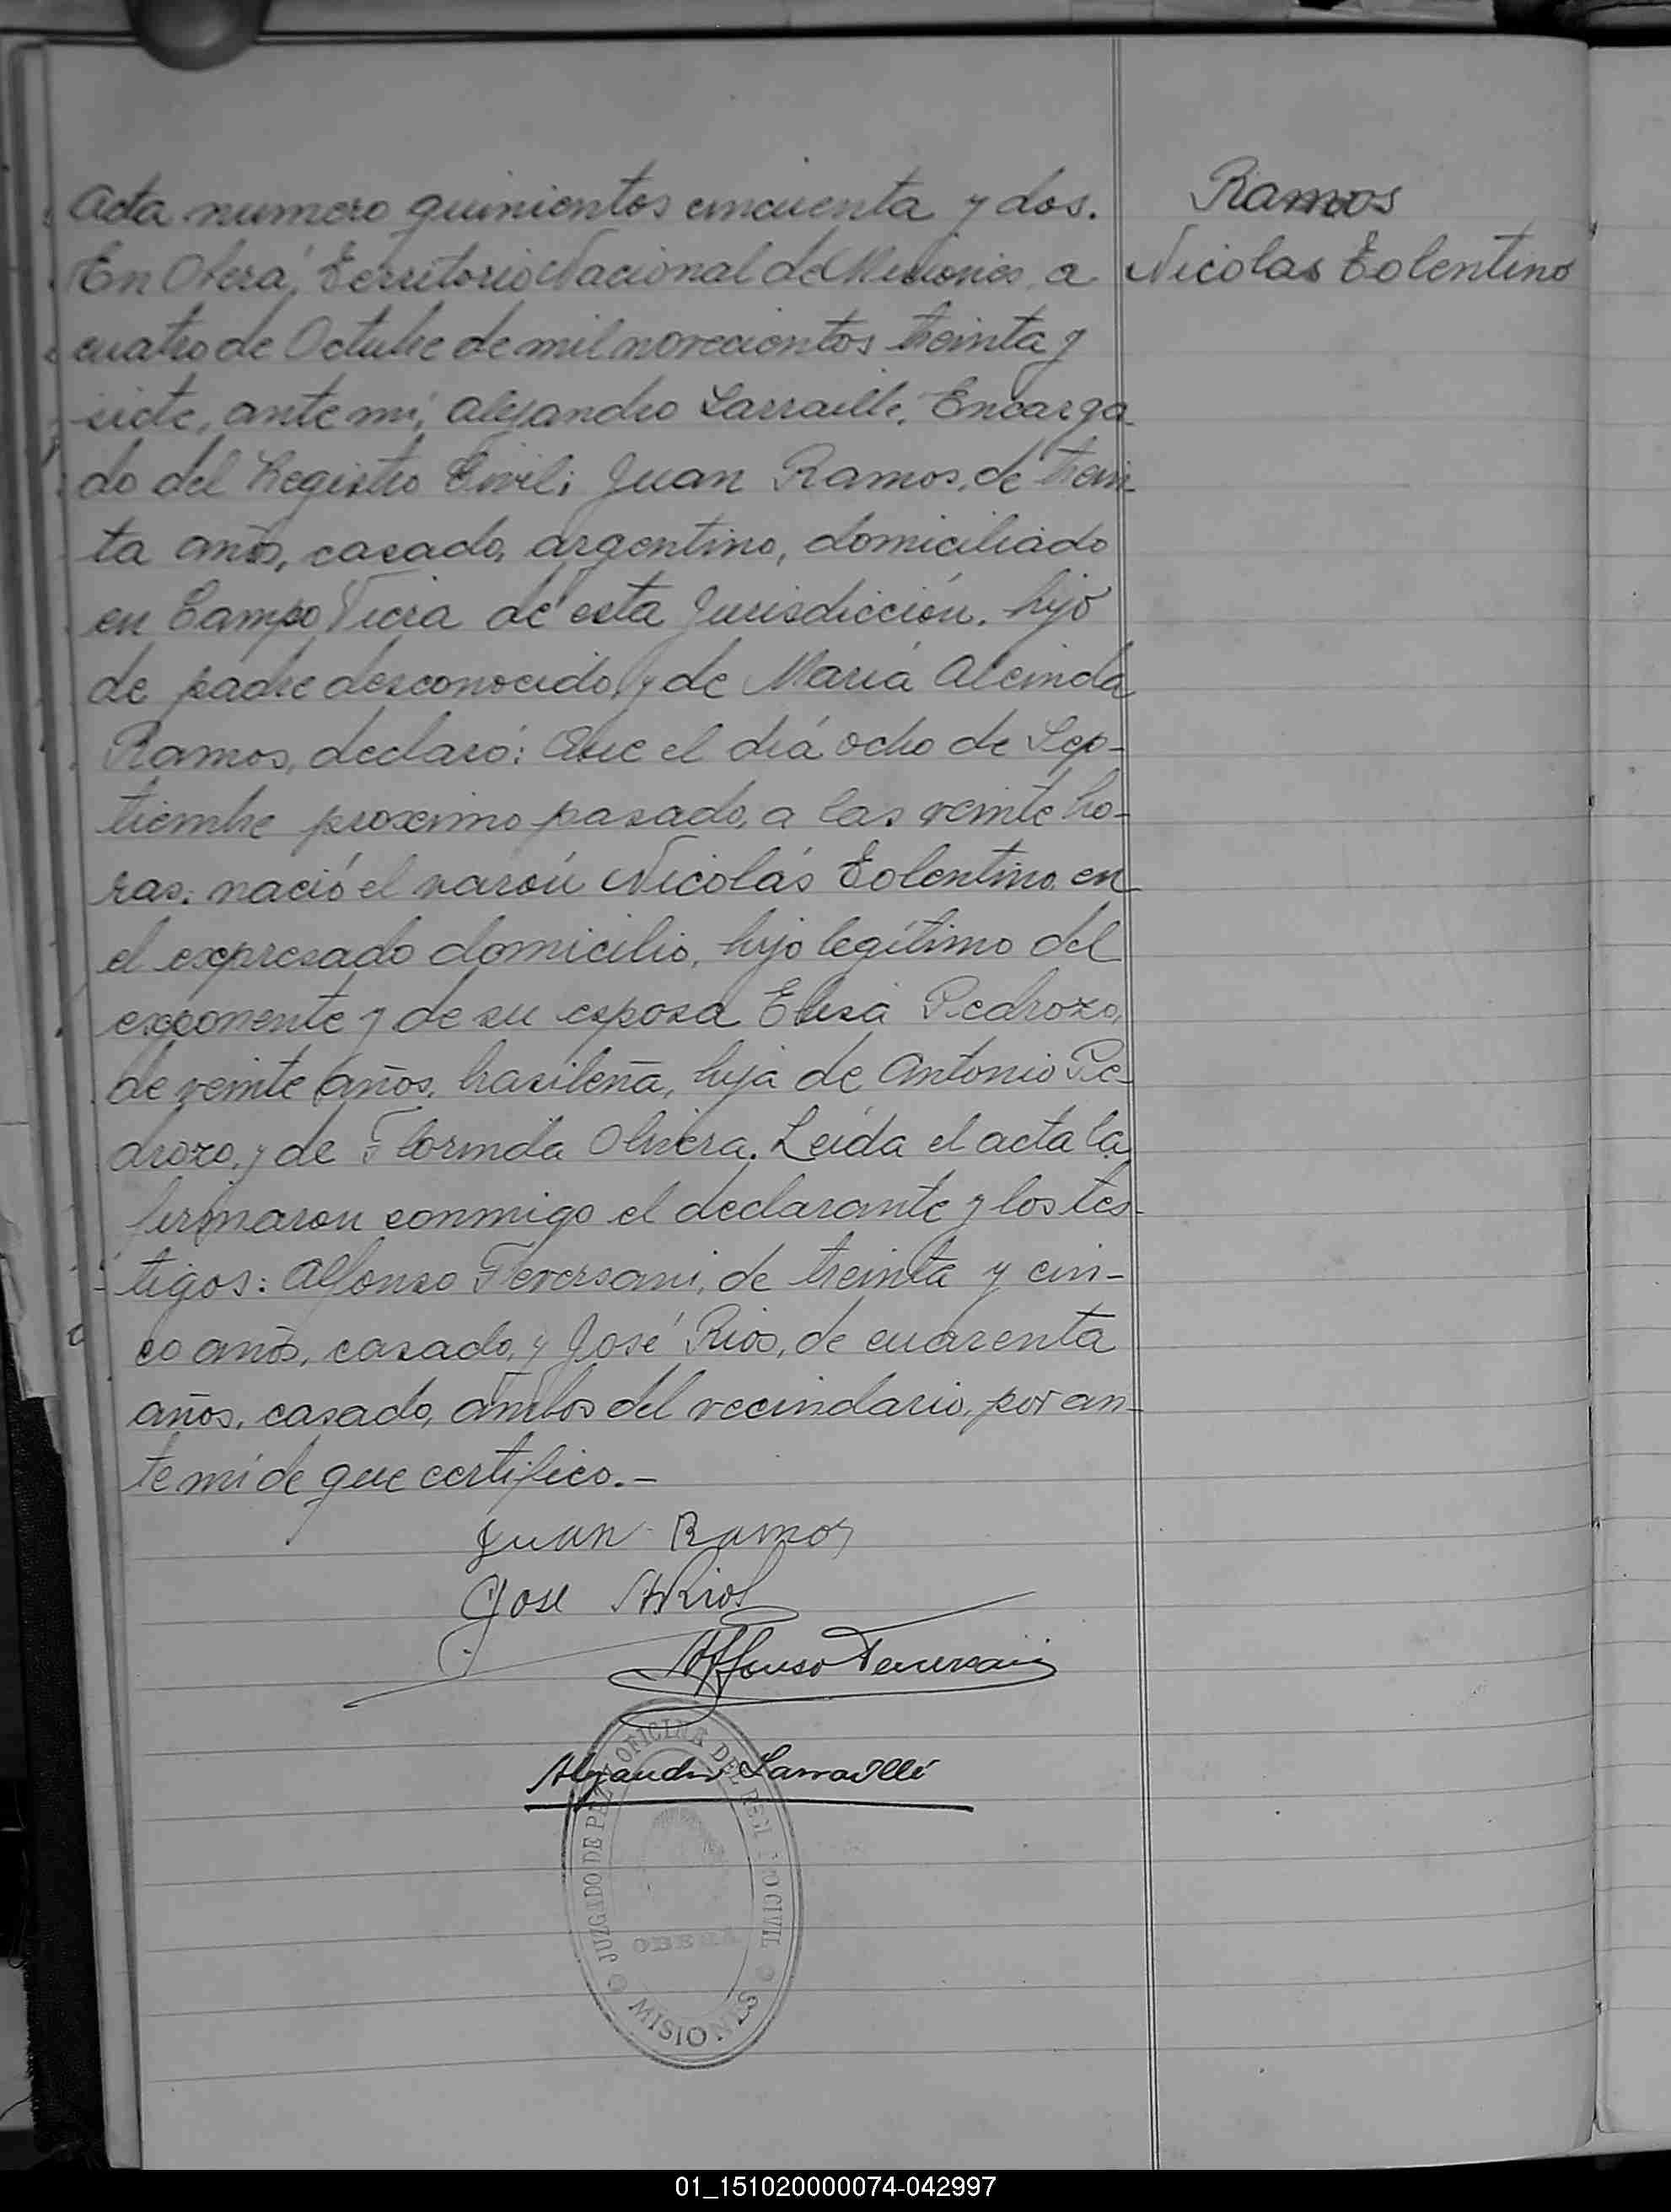 Acta numero quinientos cincuenta y dos.
En Oberá, Territorio Nacional de Misiones, a
cuatro de Octubre de mil novecientos treinta y
siete, ante mi, Alejandro Larraillé, Encarga-
do del Registro Civil; Juan Ramos, de trein-
ta años, casado, argentino, domiciliado
en Campo Viera de esta Jurisdicción, hijo
de padre desconocido, y de María Alcinda
Ramos, declaró: Que el día ocho de Sep-
tiembre proximo pasado, a las veinte ho-
ras, nació el varón Nicolás Tolentino, en
el expresado domicilio, hijo legítimo del
exponente y de su esposa Elisa Pedrozo,
de veinte años, brasileña, hija de Antonio Pe-
drozo, y de Florinda Olivera. Leída el acta la
firmaron conmigo el declarante y los tes-
tigos: Alfonso Feversani, de treinta y cin-
co años, casado, y José Rios, de cuarenta
años, casado, ambos del vecindario, por an-
te mí de que certifico.-
Ramos
Nicolas Tolentino
Juan Ramos
Jose Rios
Alejandro Larraillé
JUZGADO DE PAZ Y OFICINA DEL REGISTRO CIVIL
OBERÁ
MISIONES
01_151020000074-042997